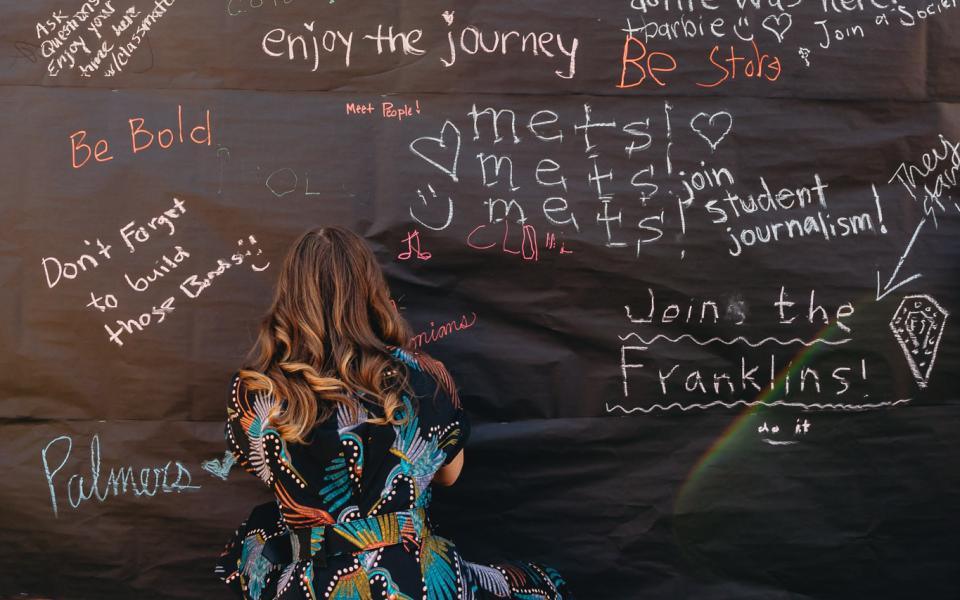 Ask
Questions
Enjoy your
time here
w/classmates
enjoy the journey
was here!
Join a
Be
Meet People!
Be Bold
mets!
mets!
mets!
join
student
journalism!
They
Don't Forget
to build
those Bonds
Join the
Franklins!
do it
Palmers